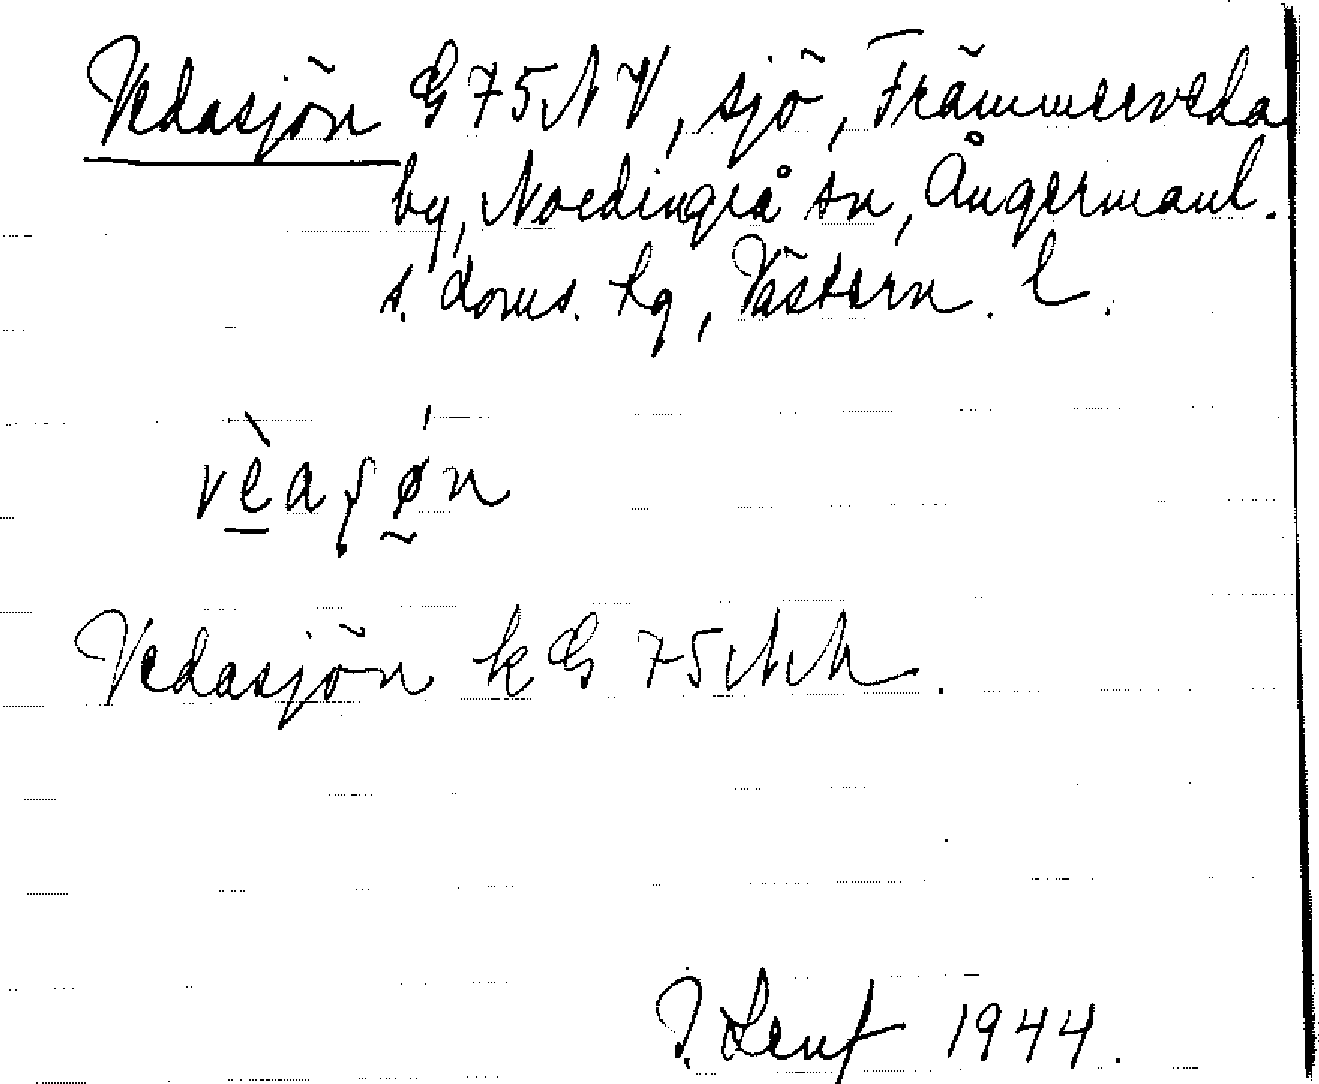 Vedasjön G 75 NV, sjö, Främmerveda
by, Nordingrå sn, Ångermanl.
s. doms. hg, Västern. l.
Vedasjön k G 75
1944.